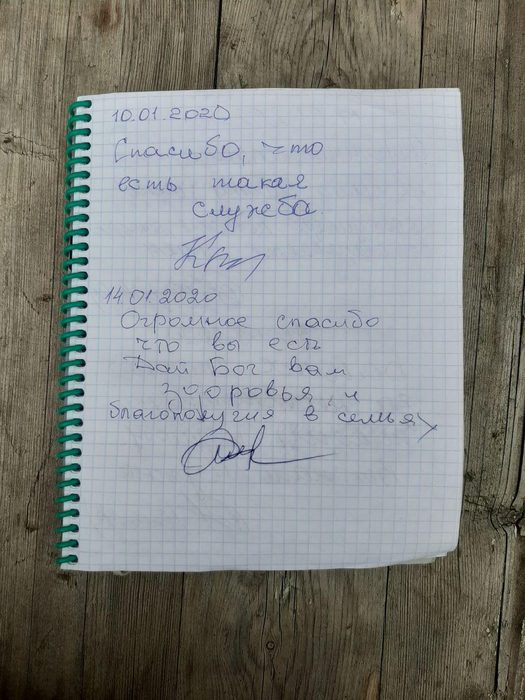 10.01.2020
Спасибо, что
есть такая
служба.
14.01.2020
Огромное спасибо
что вы есть
Дай Бог вам
здоровья, и
благополучия в семьях